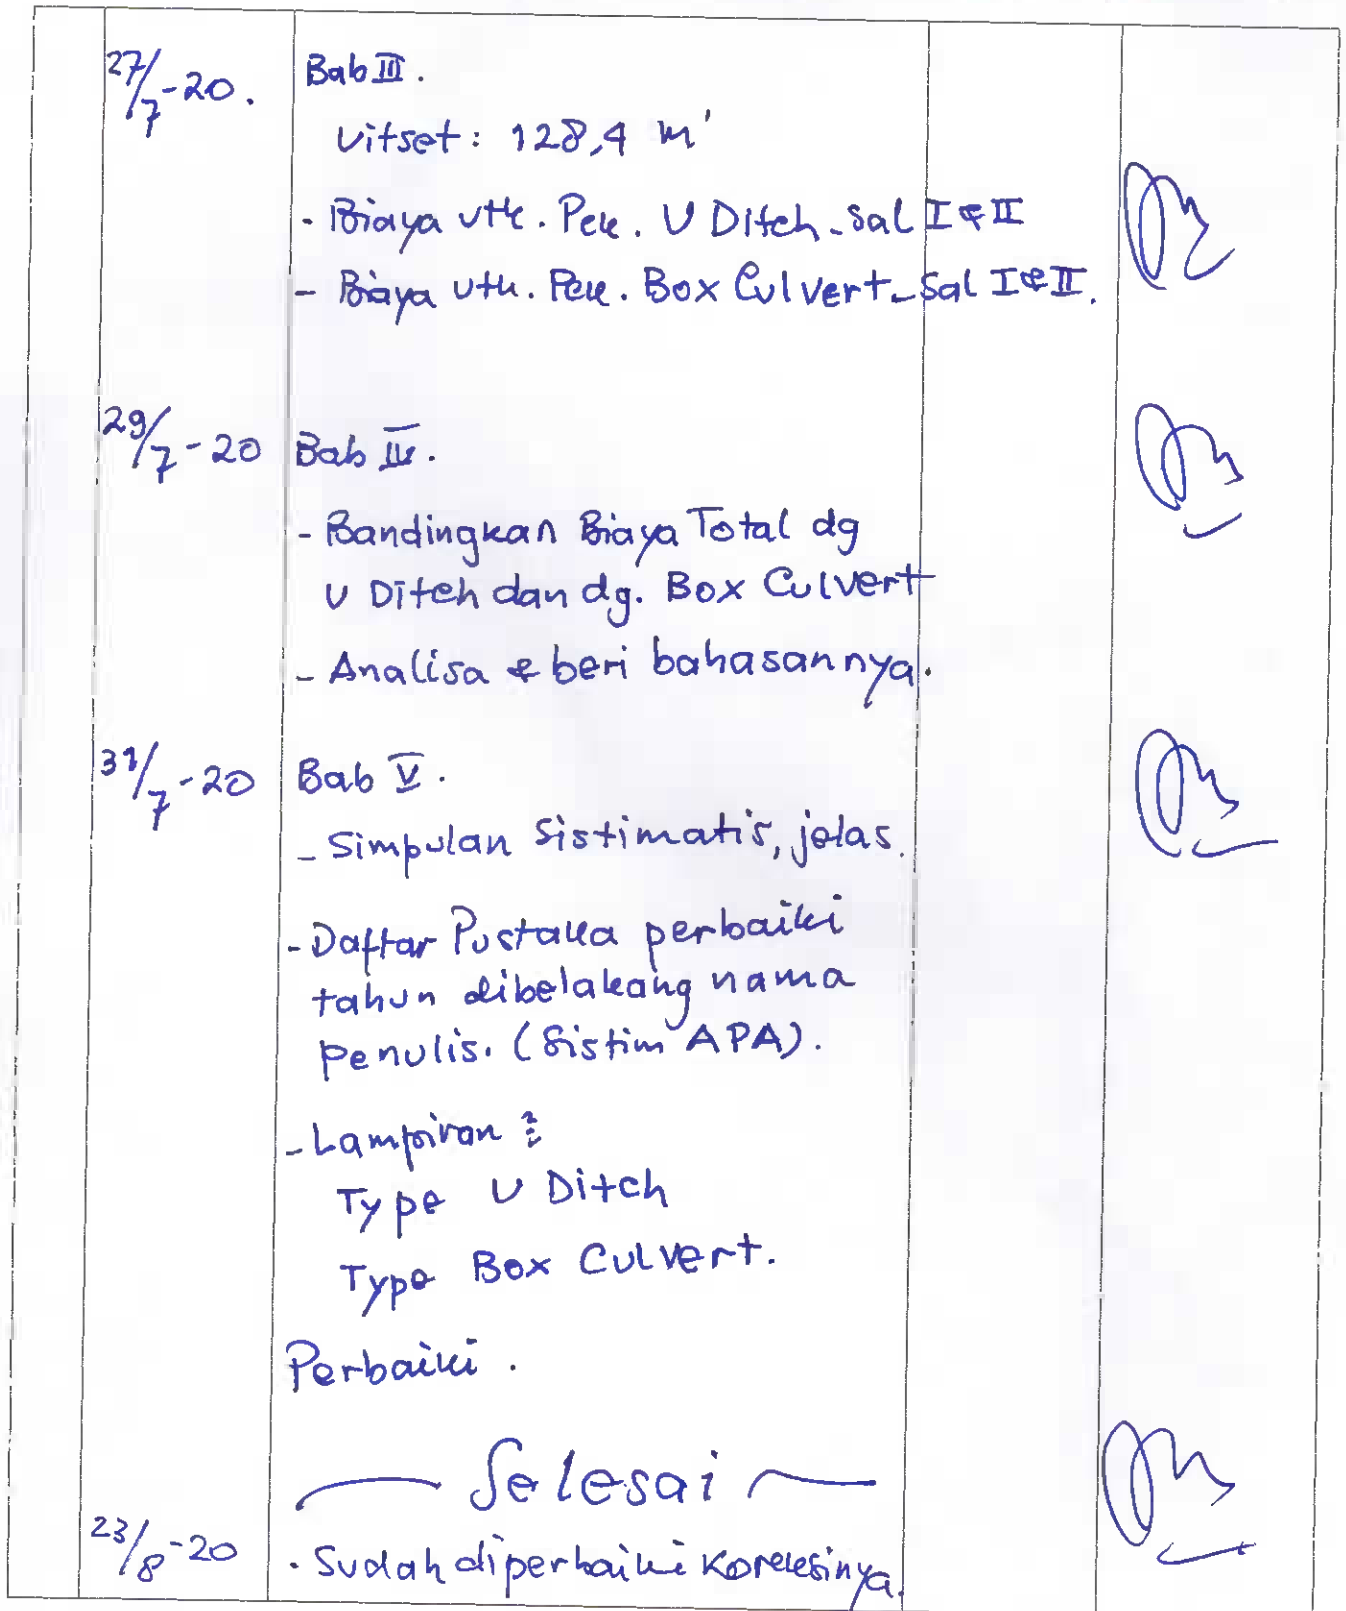 27/7-20. Bab III.
Uitset: 128,4 m'
- Biaya utk. Pek. U Ditch-Sal I & II
- Biaya utk. Pek. Box Culvert-Sal I & II.
29/7-20 Bab IV.
- Bandingkan Biaya Total dg
U Ditch dan dg. Box Culvert
- Analisa & beri bahasannya.
31/7-20 Bab V.
- Simpulan Sistimatis, jelas.
- Daftar Pustaka perbaiki
tahun dibelakang nama
penulis. (Sistim APA).
- Lampiran :
Type U Ditch
Type Box Culvert.
Perbaiki.
Selesai
23/8-20 - Sudah diperbaiki Koreksinya.